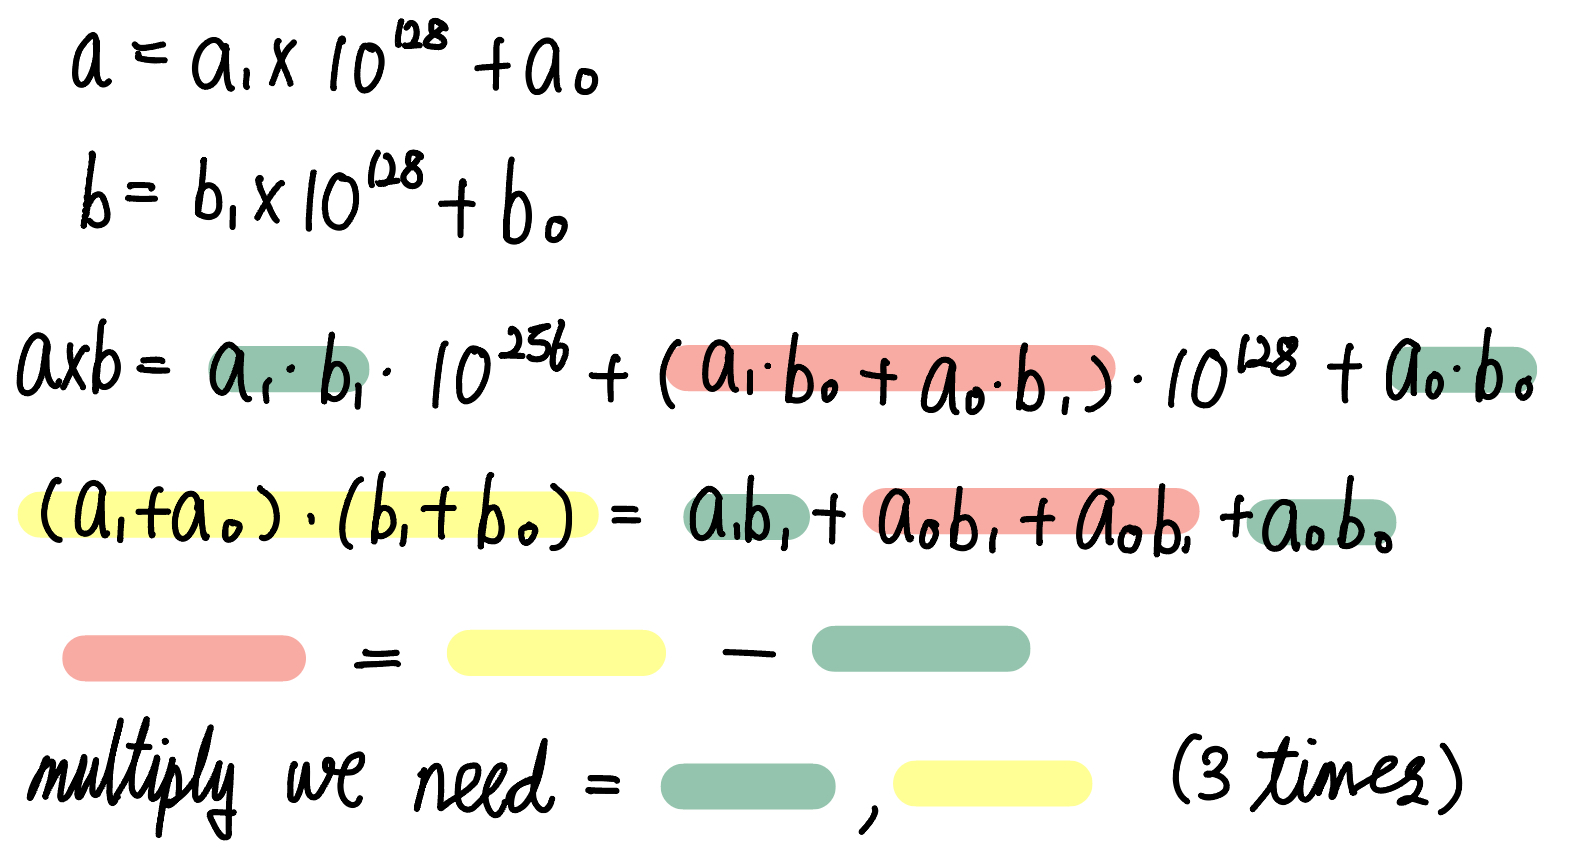 a = a₁ × 10¹²⁸ + a₀
b = b₁ × 10¹²⁸ + b₀
a×b = a₁·b₁ · 10²⁵⁶ + (a₁·b₀ + a₀·b₁) · 10¹²⁸ + a₀·b₀
(a₁+a₀) · (b₁+b₀) = a₁b₁ + a₀b₁ + a₀b₁ + a₀b₀
= −
multiply we need = , (3 times)